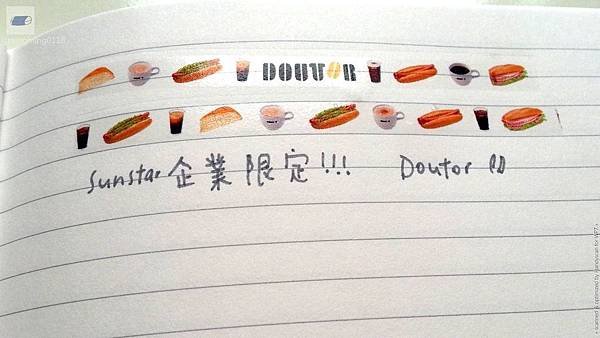 DOUTOR
Sunstar 企業限定!!! Doutor